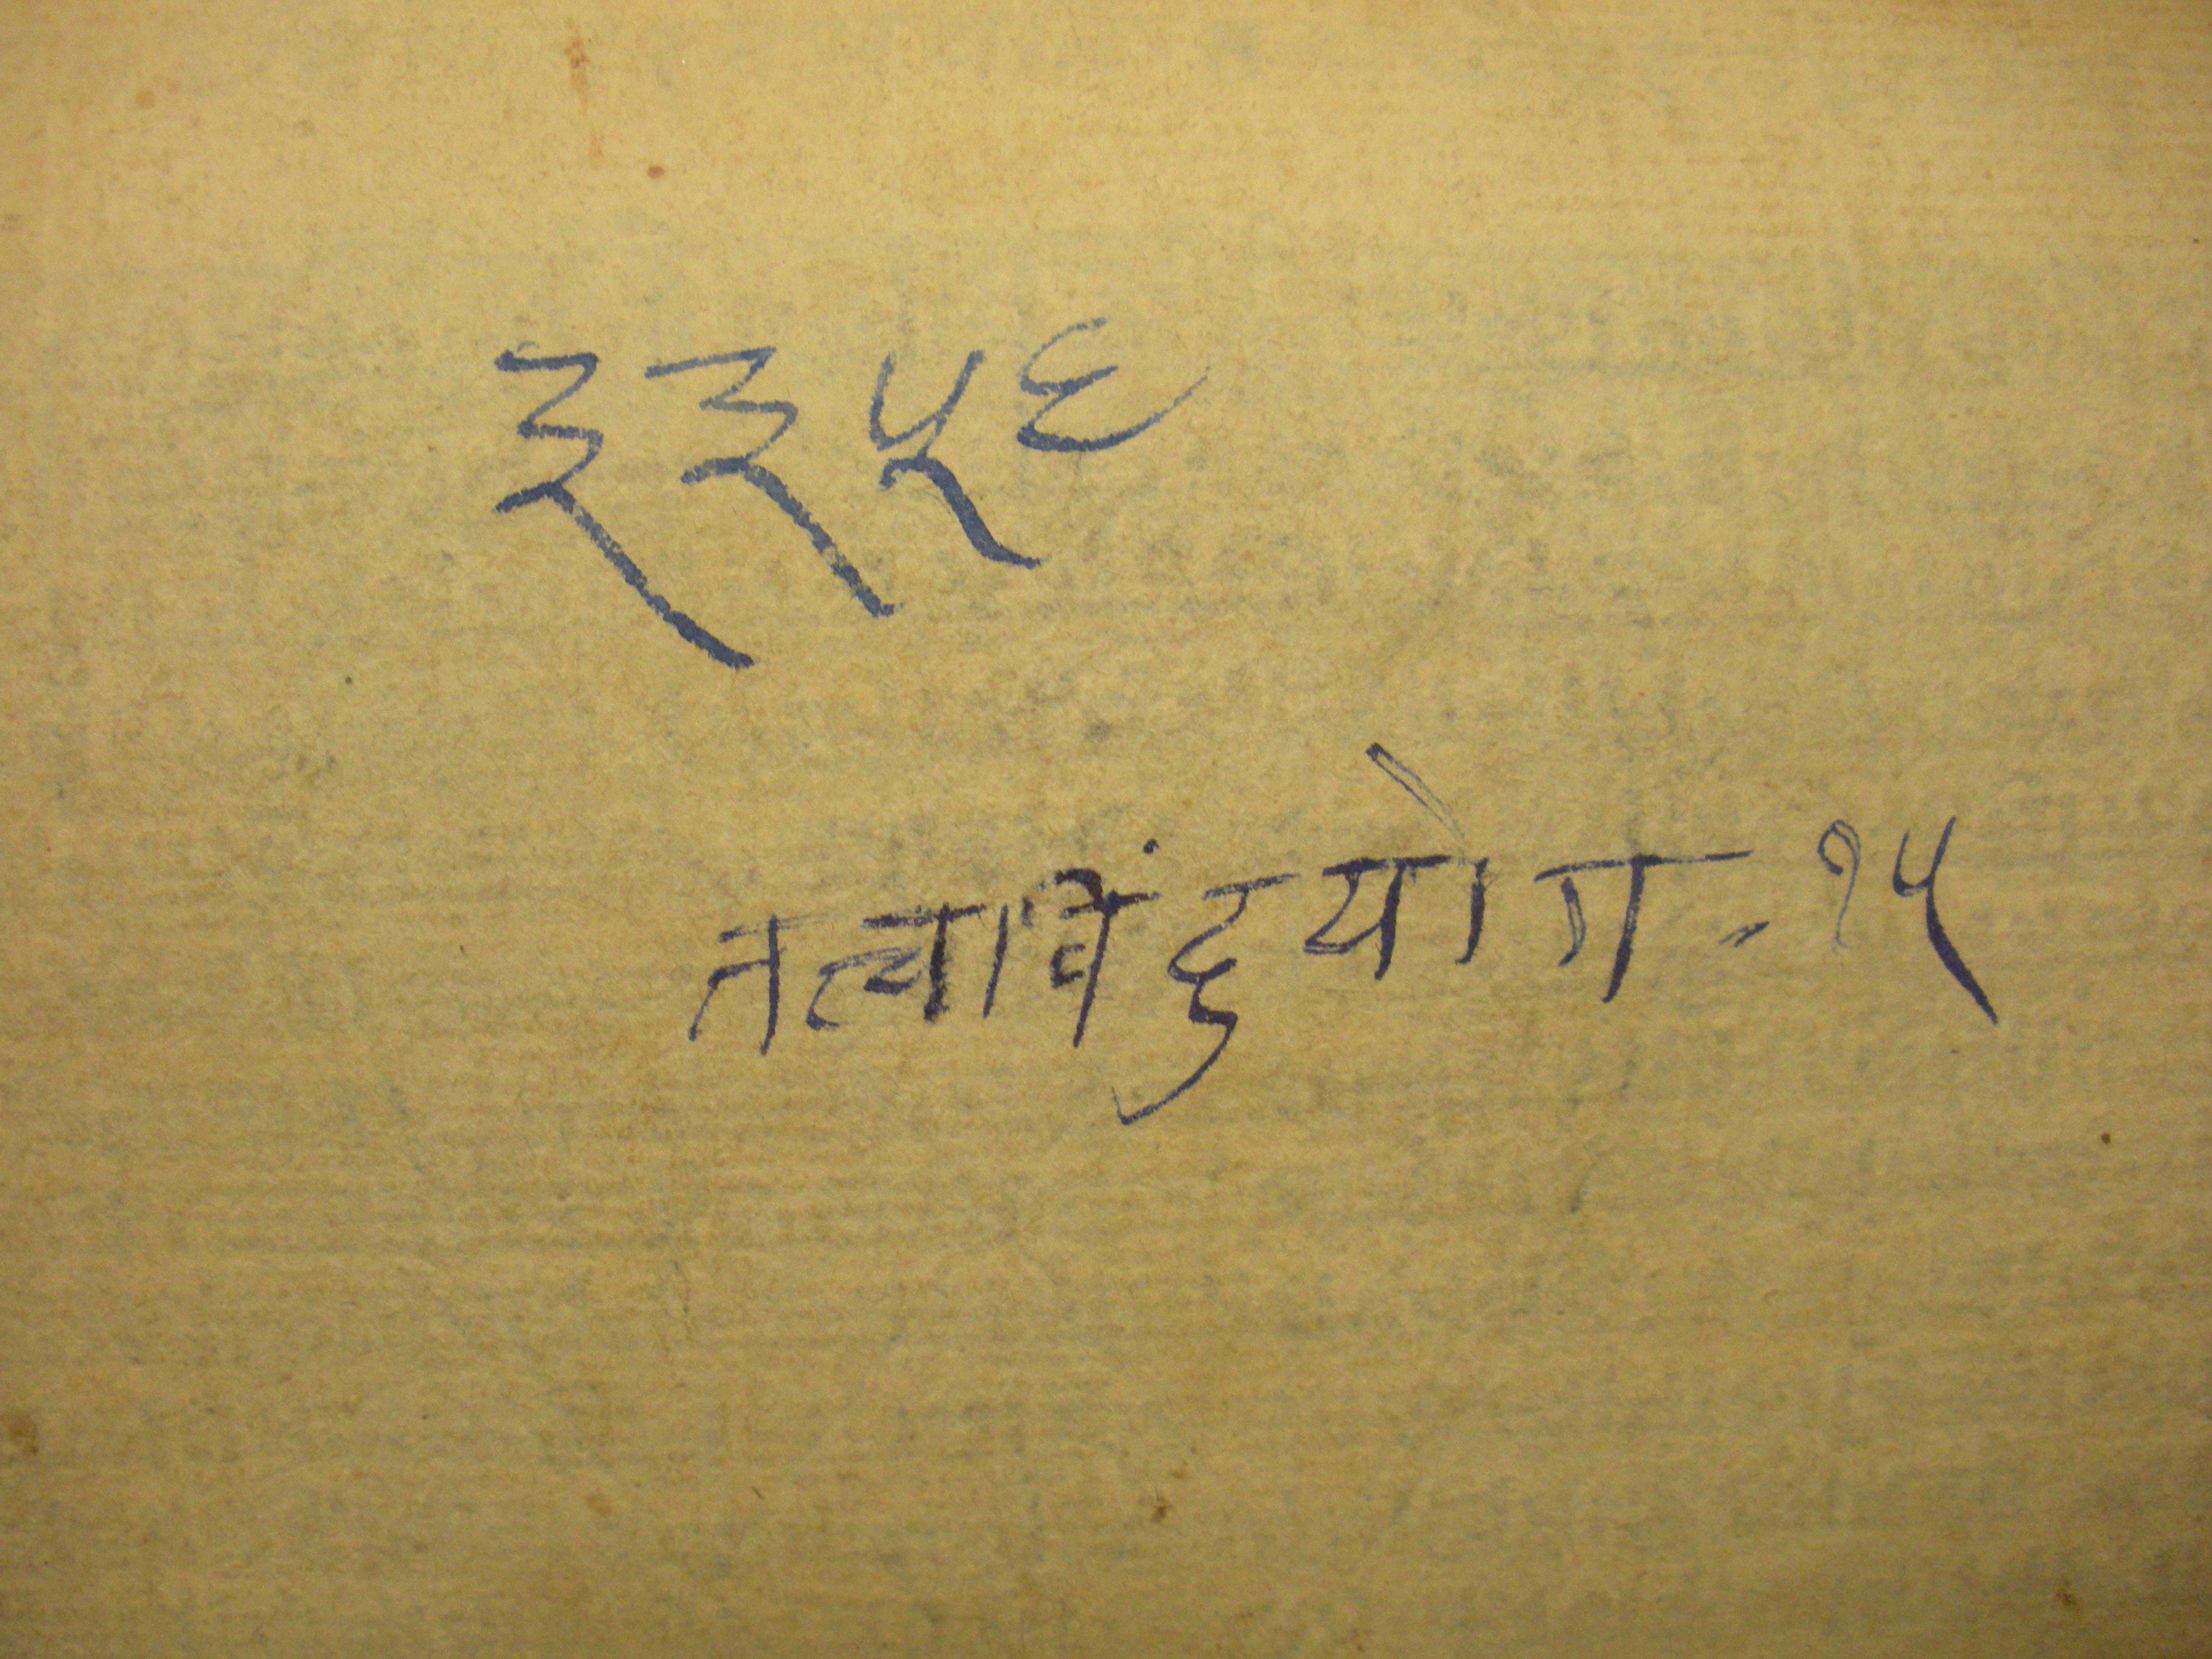 ३३५६
तत्वाविंदुयोग - १५